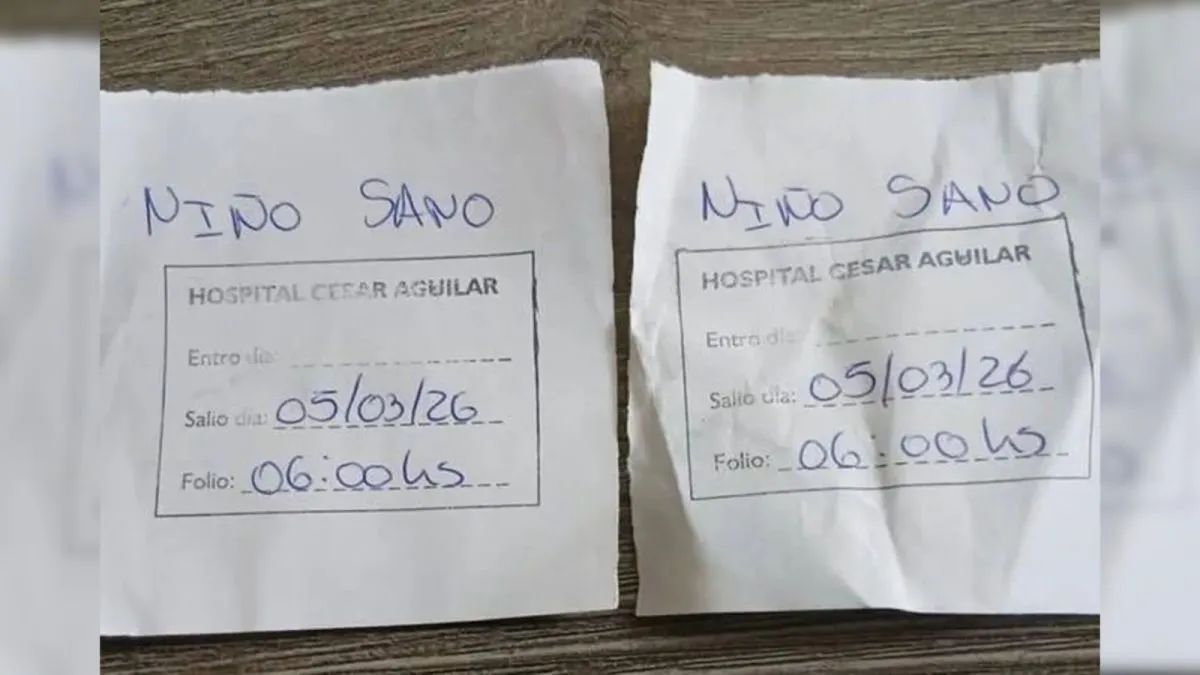 NIÑO SANO
HOSPITAL CESAR AGUILAR
Entro dia:
Salio dia: 05/03/26
Folio: 06:00hs
NIÑO SANO
HOSPITAL CESAR AGUILAR
Entro dia:
Salio dia: 05/03/26
Folio: 06:00hs